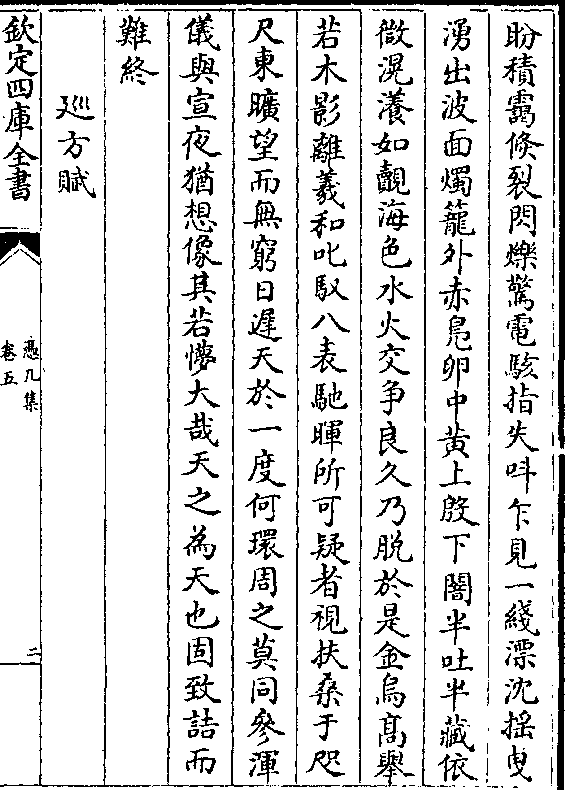 盼積靄倏裂閃爍驚電駭指失呌乍見一綫漂沈揺曳
湧出波面燭籠外赤鳬卵中黄上殷下闇半吐半藏依
微滉瀁如覿海色水火交争良久乃脱於是金烏髙舉
若木影離羲和叱馭八表馳暉所可疑者視扶桑于咫
尺東曠望而無窮日遲天於一度何環周之莫同參渾
儀與宣夜猶想像其若懜大哉天之為天也固致詰而
難終
廵方賦
欽定四庫全書
憑几集
卷五
二